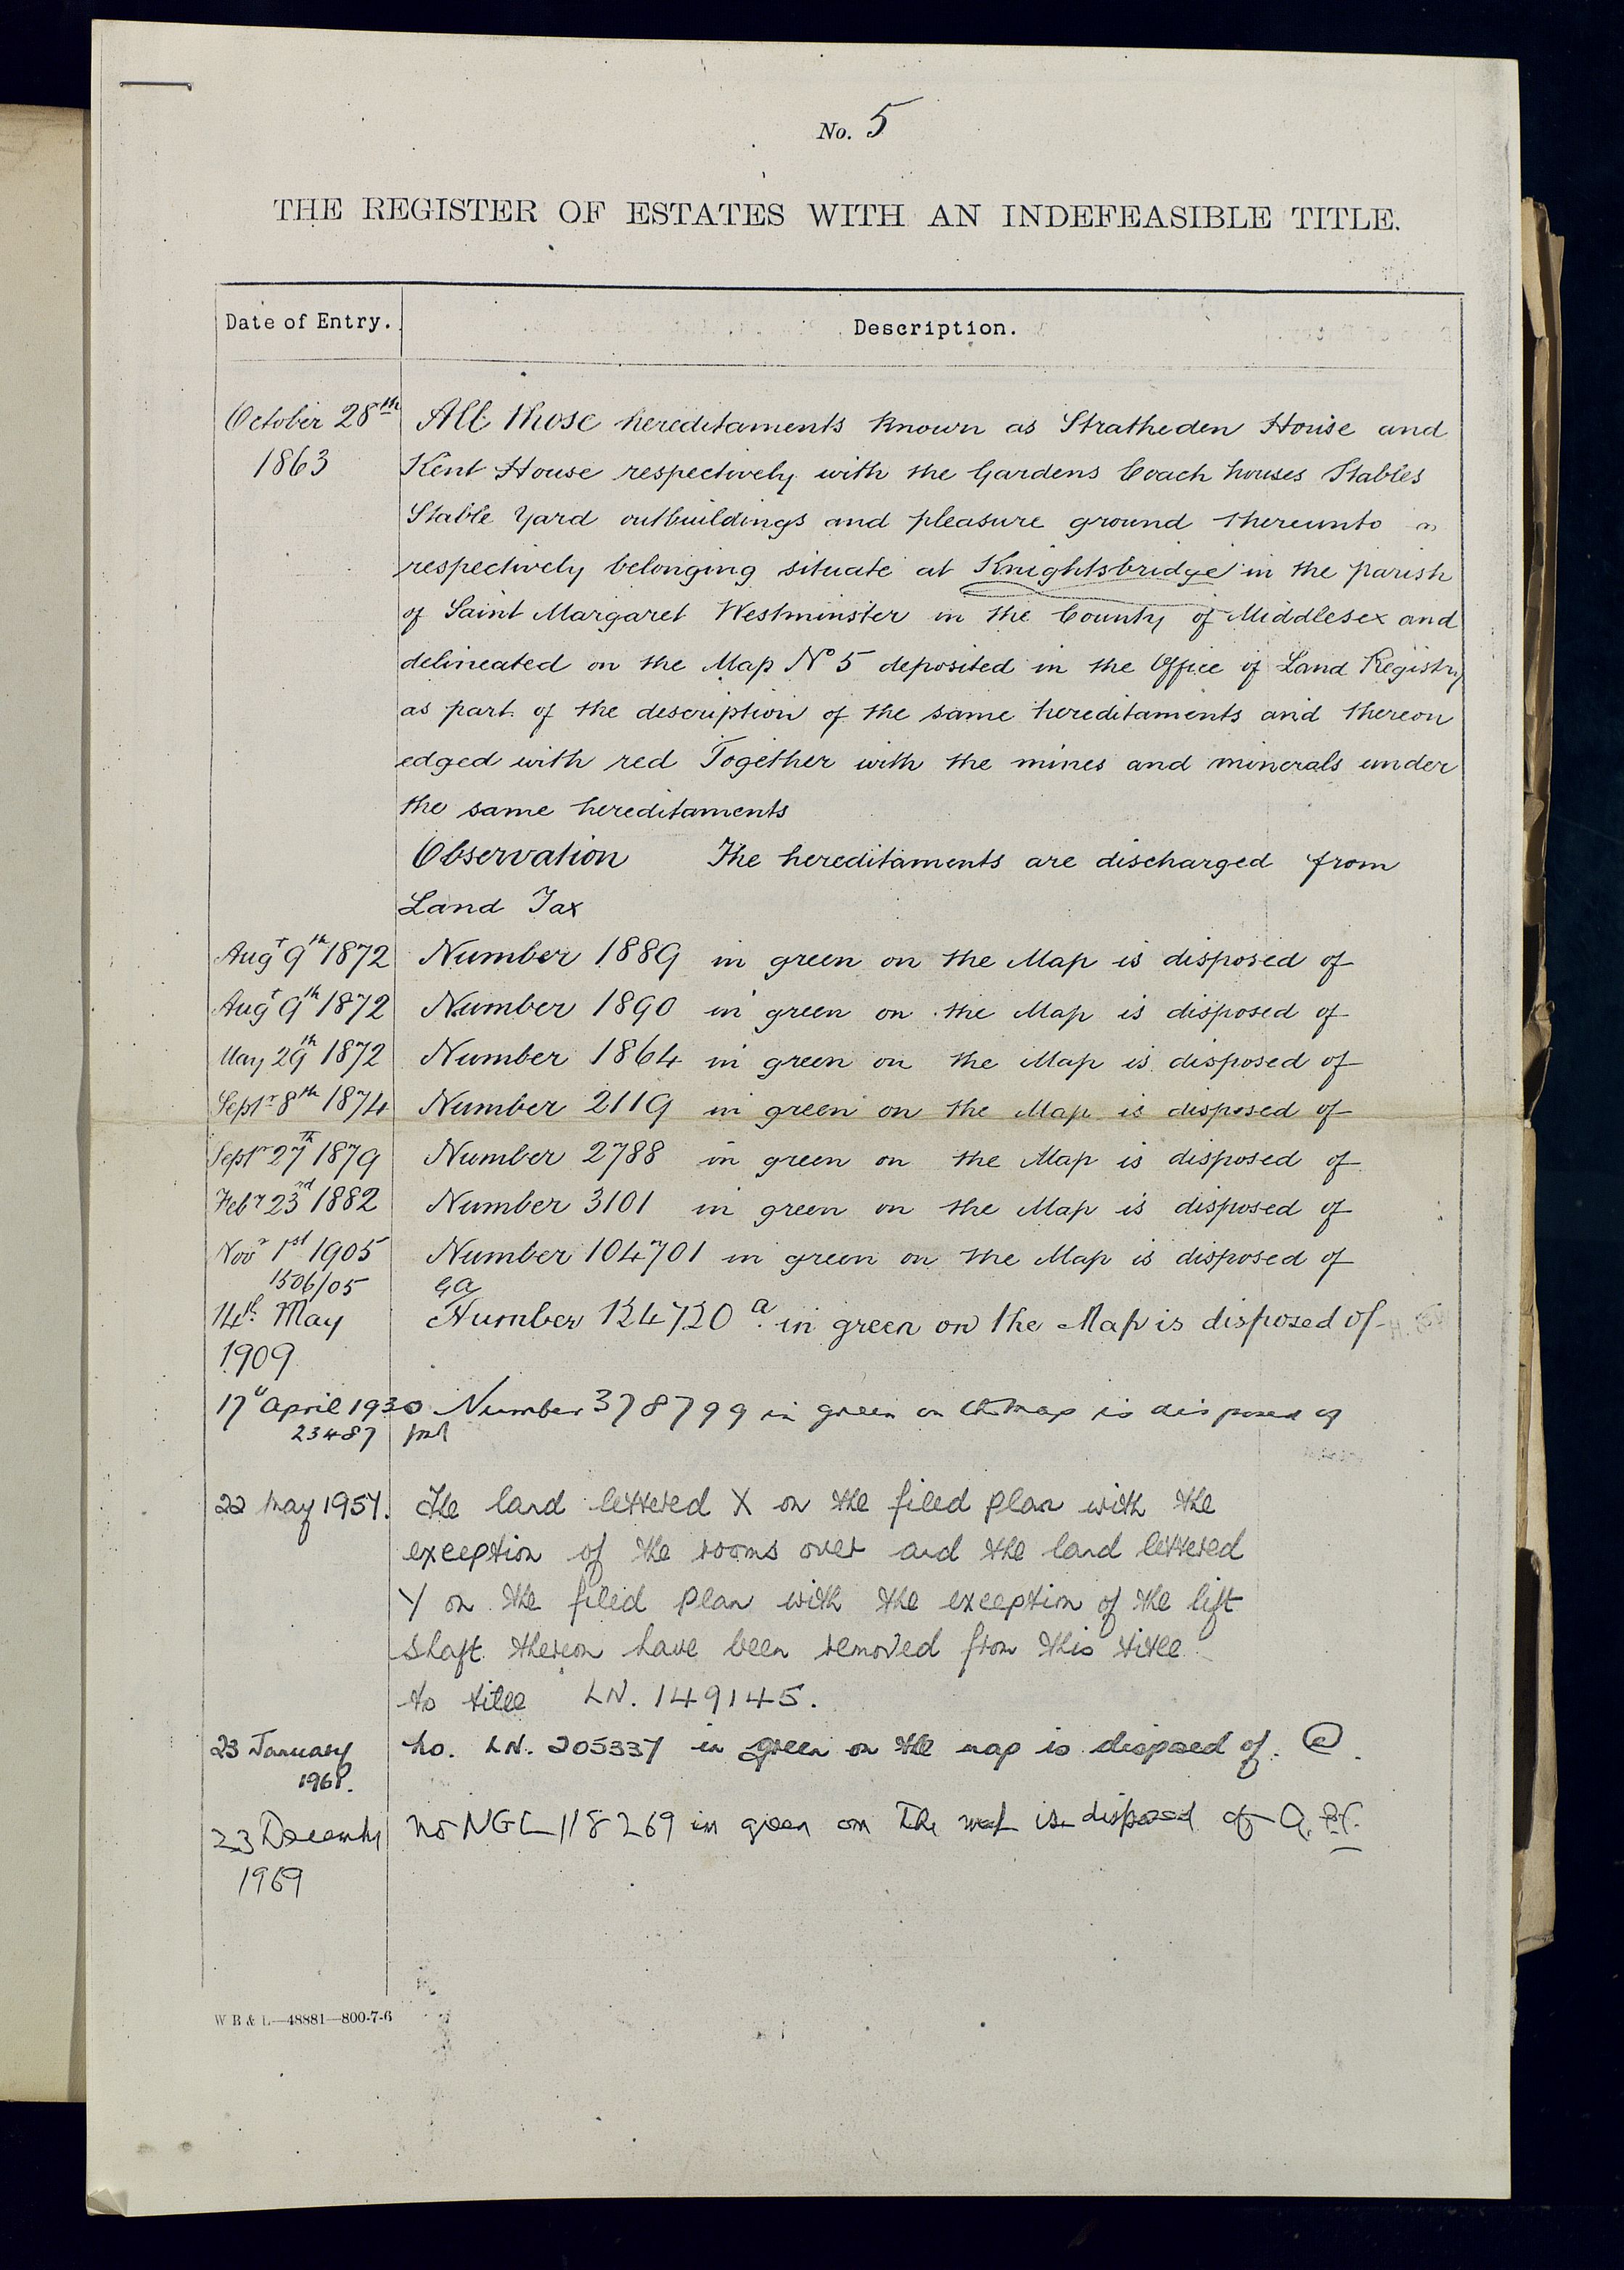 No. 5
THE REGISTER OF ESTATES WITH AN INDEFEASIBLE TITLE.
Date of Entry.
Description.
October 28th
1863
All those hereditaments known as Stratheden House and
Kent House respectively with the Gardens Coach houses Stables
Stable Yard outbuildings and pleasure ground thereunto
respectively belonging situate at Knightsbridge in the parish
of Saint Margaret Westminster in the County of Middlesex and
delineated on the Map No 5 deposited in the Office of Land Registry
as part of the description of the same hereditaments and thereon
edged with red Together with the mines and minerals under
the same hereditaments
Observation The hereditaments are discharged from
Land Tax
Augt 9th 1872 Number 1889 in green on the Map is disposed of
Augt 9th 1872 Number 1890 in green on the Map is disposed of
May 29th 1872 Number 1864 in green on the Map is disposed of
Septr 8th 1874 Number 2119 in green on the Map is disposed of
Septr 27th 1879 Number 2788 in green on the Map is disposed of
Febr 23rd 1882 Number 3101 in green on the Map is disposed of
Novr 1st 1905 Number 104701 in green on the Map is disposed of
1506/05
14th May
1909
Number 124720 a in green on the Map is disposed of
17 April 1930 Number 378799 in green on the map is disposed of
23487
22 May 1957. The land lettered X on the filed plan with the
exception of the rooms over and the land lettered
Y on the filed plan with the exception of the lift
shaft thereon have been removed from this title
to title LN. 149145.
23 January
No. LN. 205337 in green on the map is disposed of.
23 December
1969
No NGL 118269 in green on the map is disposed of
W B & L—48881—800-7-6